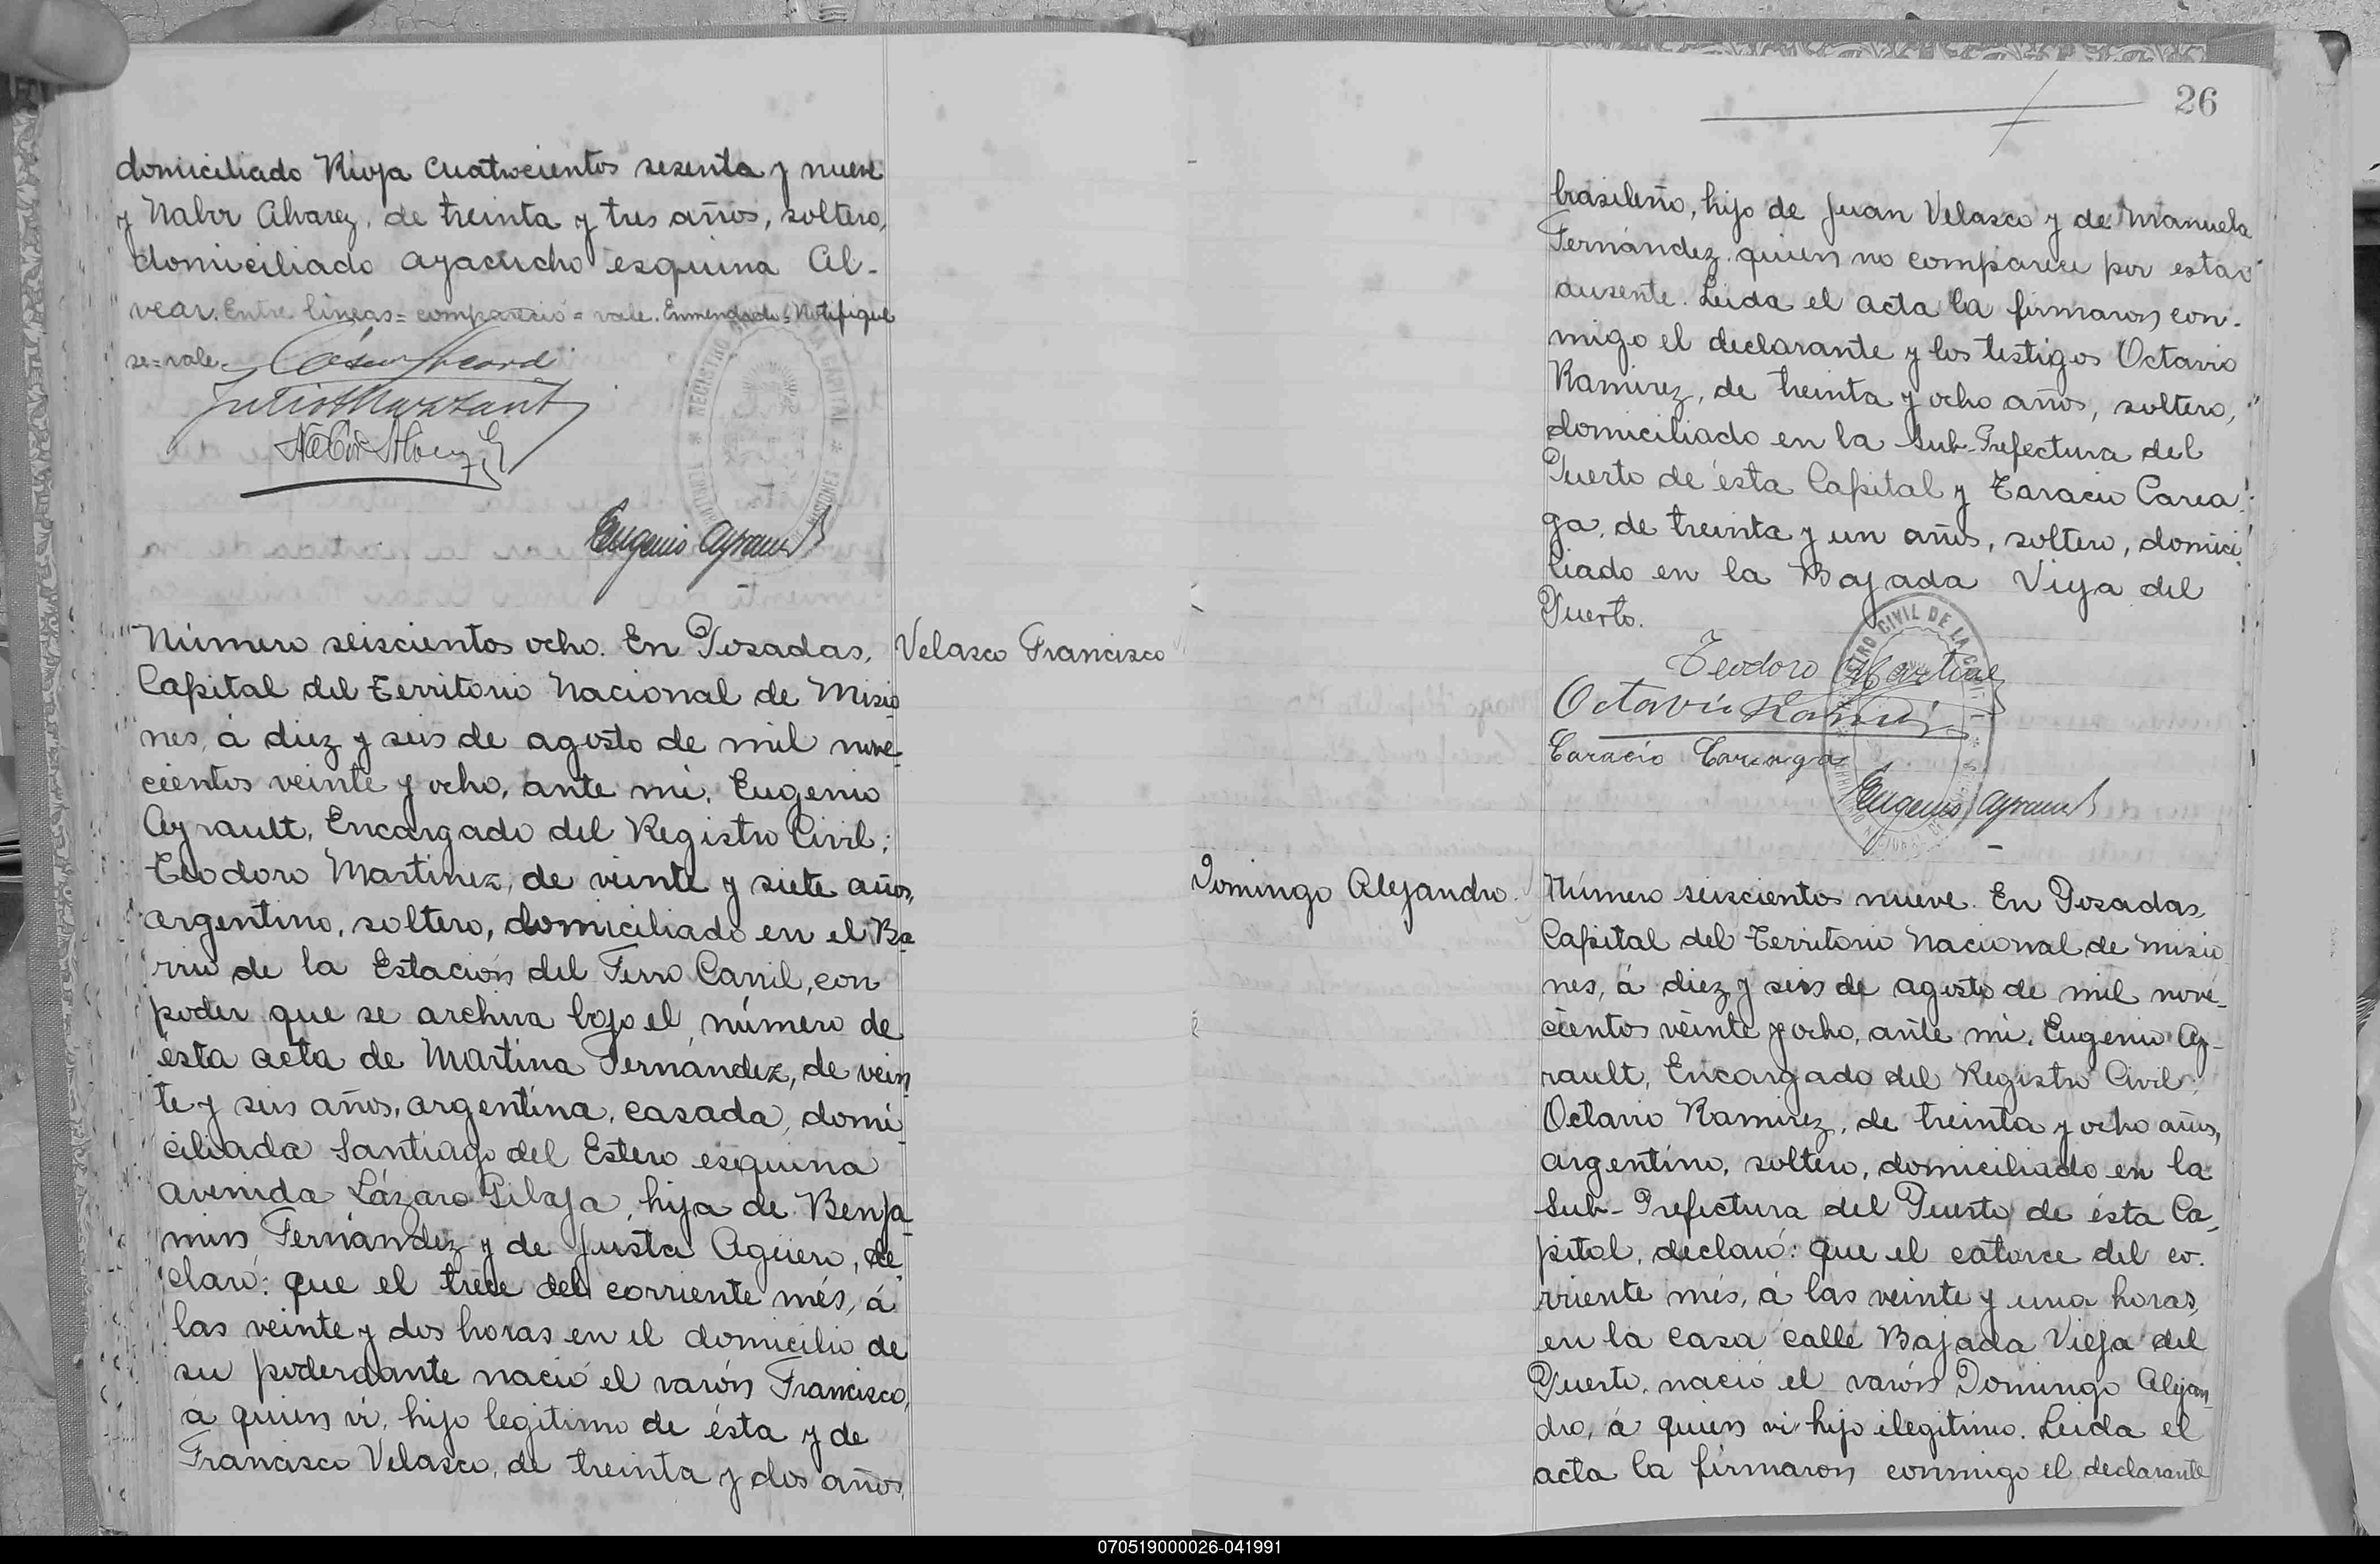 domiciliado Rioja cuatrocientos sesenta y nueve
y Nabor Alvarez, de treinta y tres años, soltero,
domiciliado Ayacucho esquina Al-
vear. Entre lineas = compareció = vale. Enmendado = Notifique
se = vale -
Eugenio Ayrault
Número seiscientos ocho. En Posadas,
Capital del Territorio Nacional de Misio
nes, á diez y seis de agosto de mil nove-
cientos veinte y ocho, ante mí, Eugenio
Ayrault, Encargado del Registro Civil;
Teodoro Martinez, de veinte y siete años,
argentino, soltero, domiciliado en el Ba-
rrio de la Estación del Ferro Carril, con
poder que se archiva bajo el número de
ésta acta de Martina Fernández, de vein
te y seis años, argentina, casada, domi-
ciliada Santiago del Estero esquina
avenida Lázaro Gibaja, hija de Benja-
min Fernández y de Justa Agüero, de
claró: que el trece del corriente més, á
las veinte y dos horas en el domicilio de
su poderdante nació el varón Francisco,
á quien ví, hijo legitimo de ésta y de
Francisco Velasco, de treinta y dos años,
Velasco Francisco
26
brasileño, hijo de Juan Velasco y de Manuela
Fernández, quien no comparece por estar
ausente. Leida el acta la firmaron con-
migo el declarante y los testigos Octavio
Ramirez, de treinta y ocho años, soltero,
domiciliado en la Sub-Prefectura del
Puerto de ésta Capital y Taracio Carea
ga, de treinta y un años, soltero, domici
liado en la Bajada Vieja del
Puerto.
Teodoro Martinez
Octavio Ramirez
Taracio Careaga
Eugenio Ayrault
Domingo Alejandro.
Número seiscientos nueve. En Posadas,
Capital del Territorio Nacional de Misio
nes, á diez y seis de agosto de mil nove-
cientos veinte y ocho, ante mí, Eugenio Ay-
rault, Encargado del Registro Civil;
Octavio Ramirez, de treinta y ocho años,
argentino, soltero, domiciliado en la
Sub-Prefectura del Puerto de ésta Ca-
pital, declaró: que el catorce del co-
rriente més, á las veinte y una horas,
en la casa calle Bajada Vieja del
Puerto, nació el varón Domingo Alejan
dro, á quien ví hijo ilegitimo. Leida el
acta la firmaron conmigo el declarante
070519000026-041991